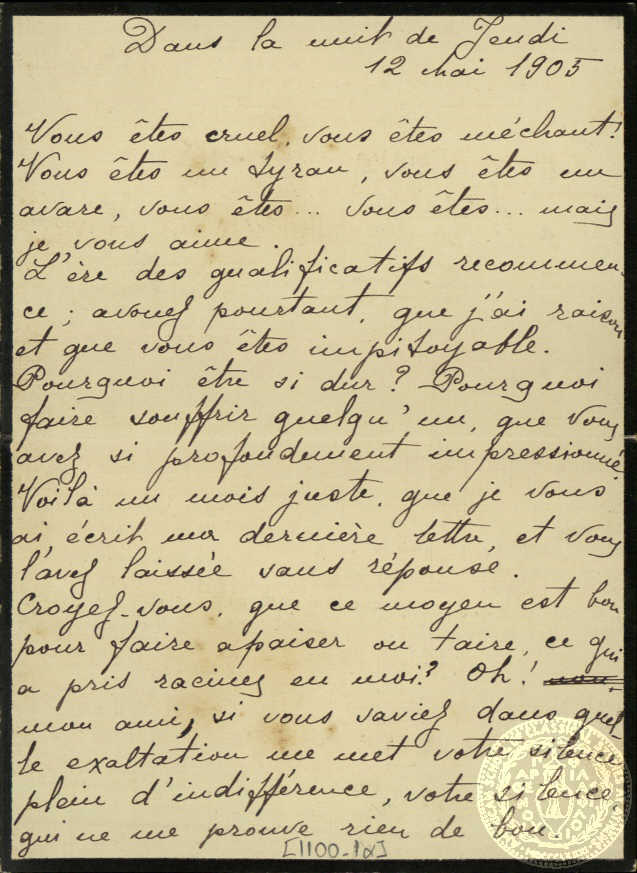 Dans la nuit de Jeudi
12 Mai 1905
Vous êtes cruel, vous êtes méchant!
Vous êtes un tyran, vous êtes un
avare, vous êtes... vous êtes... mais
je vous aime.
L'ère des qualificatifs recommen-
ce; avouez pourtant, que j'ai raison
et que vous êtes impitoyable.
Pourquoi être si dur? Pourquoi
faire souffrir quelqu'un, que vous
avez si profondement impressionné.
Voilà un mois juste, que je vous
ai écrit ma dernière lettre, et vous
l'avez laissée sans réponse.
Croyez-vous, que ce moyen est bon
pour faire apaiser ou taire, ce qui
a pris racines en moi? Oh!
mon ami, si vous saviez dans quel-
le exaltation me met votre silence
plein d'indifférence, votre silence,
qui ne me prouve rien de bon.
[1100-1α]